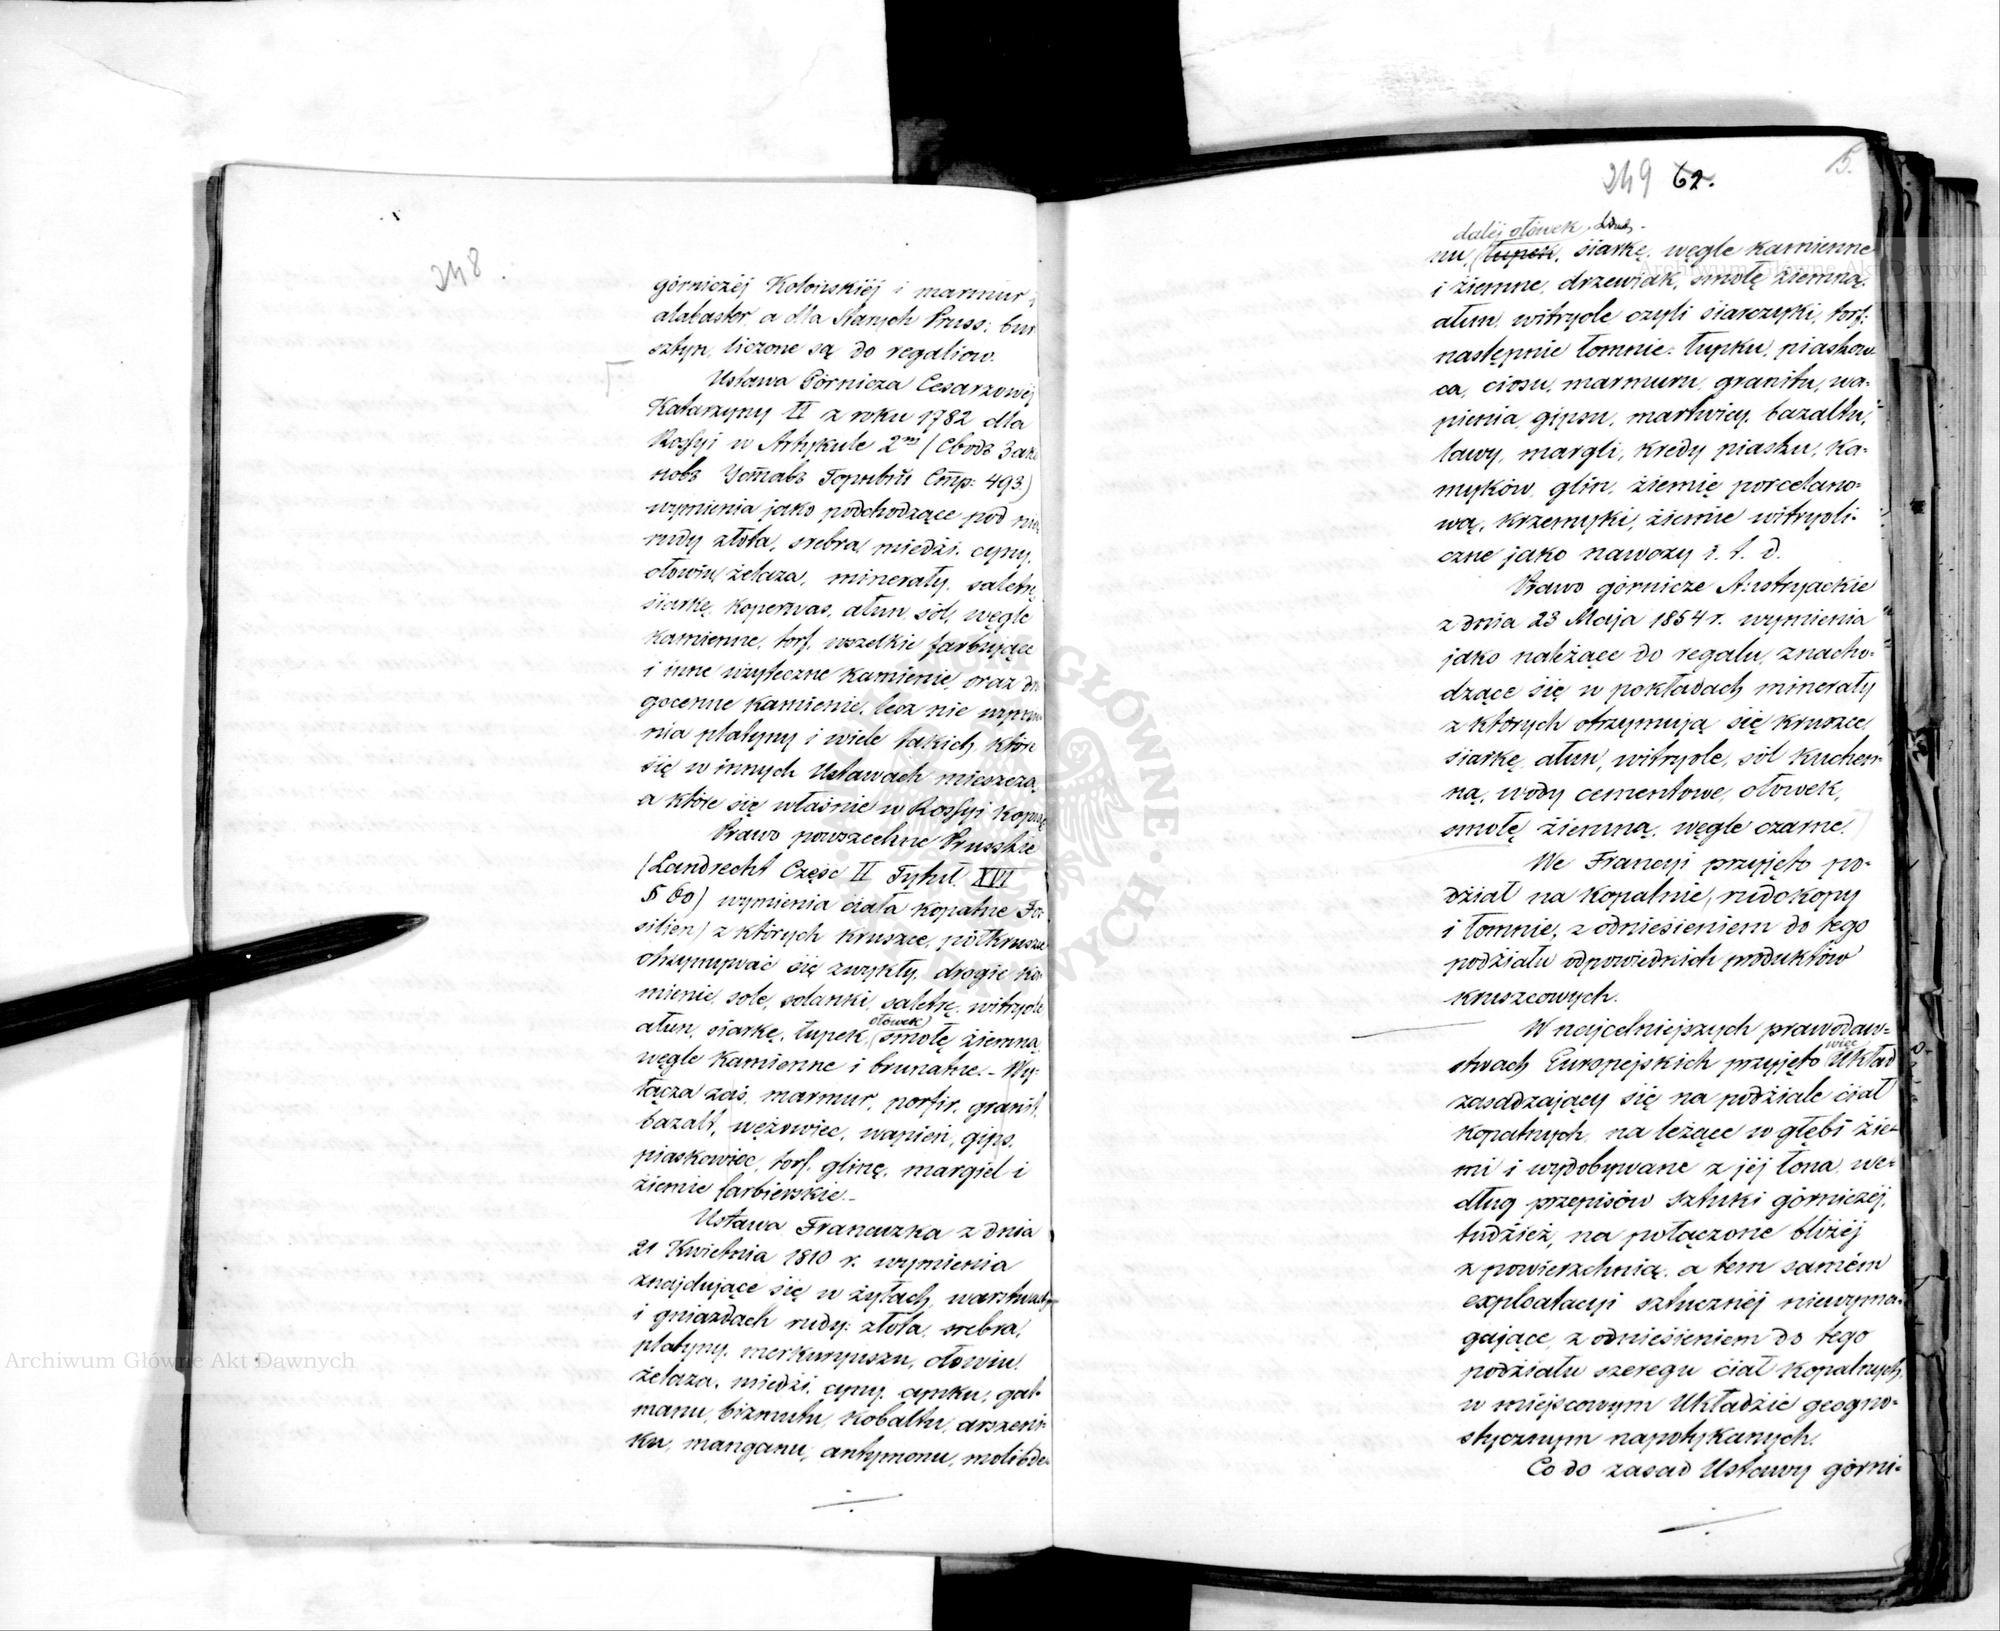 248.
górniczéj Kolońskiéj i marmur i
alabaster, a dla Starych Pruss: bur
sztyn, liczone są do regaliow.
Ustawa Górnicza Cesarzowéj
Katarzyny II z roku 1782 dla
Rossyi w Artykule 2m (Сводъ Зако
новъ Уставъ Горный Стр: 493)
wymienia jako podchodzące pod nią
rudy złota, srebra, miedzi, cyny,
ołowiu, żelaza, minerały, saletrę,
siarkę, koperwas, ałun, sól, węgle
kamienne, torf, wszelkie farbujące
i inne użyteczne kamienie, oraz dro
gocenne kamienie, lecz nie wymie
nia platyny i wiele takich, które
się w innych Ustawach mieszczą,
a które się właśnie w Rossyi kopią.
Prawo powszechne Prusskie
(Landrecht Część II Tytuł XVI
§ 60) wymienia ciała kopalne Fos
silien) z których kruszce, półkruszce
otrzymywać się zwykły, drogie ka
mienie, sole, solanki, saletrę, witryole
ołówek
ałun, siarkę, łupek, smołę ziemną,
węgle kamienne i brunatne. – Wy-
łącza zaś, marmur, porfir, granit,
bazalt, wężowiec, wapień, gips,
piaskowiec, torf, glinę, margiel i
ziemie farbierskie. –
Ustawa Francuzka z dnia
21 Kwietnia 1810 r. wymienia
znajdujące się w żyłach, warstwach
i gniazdach rudy: złota, srebra,
platyny, merkuryuszu, ołowiu,
żelaza, miedzi, cyny, cynku, gal-
manu, bizmutu, kobaltu, arszeni-
ku, manganu, antymonu, molibde-
249 62.
15.
daléj ołówek
nu, łupek, siarkę, węgle kamienne
i ziemne, drzewiak, smołę ziemną,
ałun, witryole czyli siarczyki, torf;
następnie łomnie: łupku, piaskow-
ca, ciosu, marmuru, granitu, wa-
pienia, gipsu, martwicy, bazaltu,
lawy, margli, kredy, piasku, ka-
myków, glin, ziemię porcelano-
wą, krzemyki, ziemie witryoli-
czne jako nawozy i. t. d.
Prawo górnicze Austryackie
z dnia 23 Maja 1854 r. wymienia
jako należące do regalu, znacho-
dzące się w pokładach minerały
z których otrzymują się kruszce,
siarkę, ałun, witryole, sól kuchen-
ną, wody cementowe, ołówek,
smołę ziemną, węgle czarne.
We Francyi przyjęto po-
dział na kopalnie, rudokopy
i łomnie, z odniesieniem do tego
podziału odpowiednich produktów
kruszcowych.
W najcelniejszych prawodaw-
więc
stwach Europejskich przyjęto Układ
zasadzający się na podziale ciał
kopalnych, na leżące w głębi zie-
mi i wydobywane z jéj łona, we-
dług przepisów sztuki górniczéj,
tudzież, na połączone bliżéj
z powierzchnią, a tem samém
exploatacyi sztucznéj niewyma-
gające, z odniesieniem do tego
podziału szeregu ciał kopalnych
w miejscowym Układzie geogno-
stycznym napotykanych.
Co do zasad Ustawy górni-
Archiwum Główne Akt Dawnych
Archiwum Główne Akt Dawnych
ARCHIWUM GŁÓWNE AKT DAWNYCH